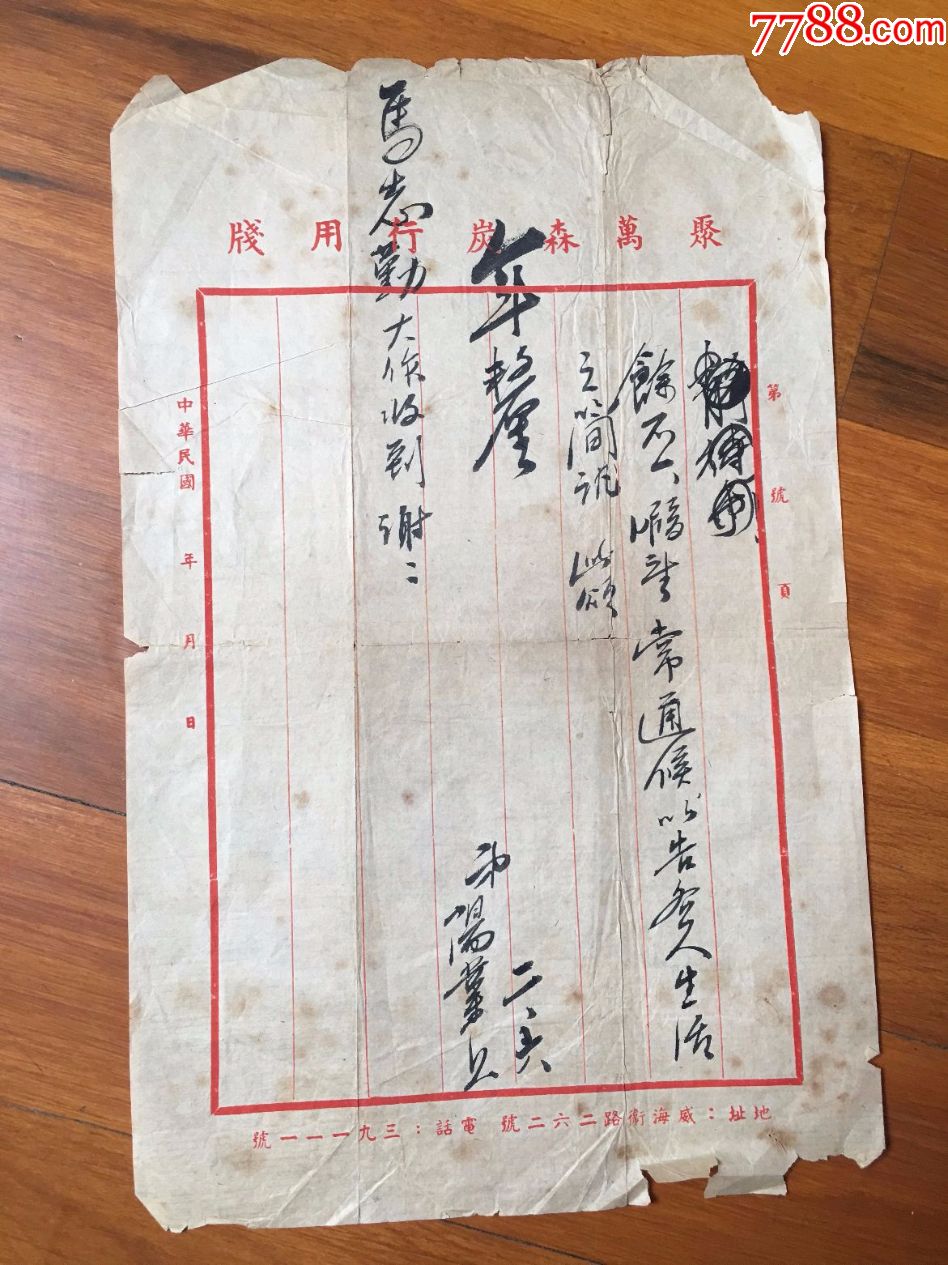 7788.com
聚萬森炭行用牋
第 號 頁
餘不一 暇時常通候以告吾人生活
之簡況 此頌
年釐
弟 陽葉上
二、六
馬志勤大作收到 謝二
中華民國 年 月 日
地址：威海衞路二六二號 電話：三九一一一號